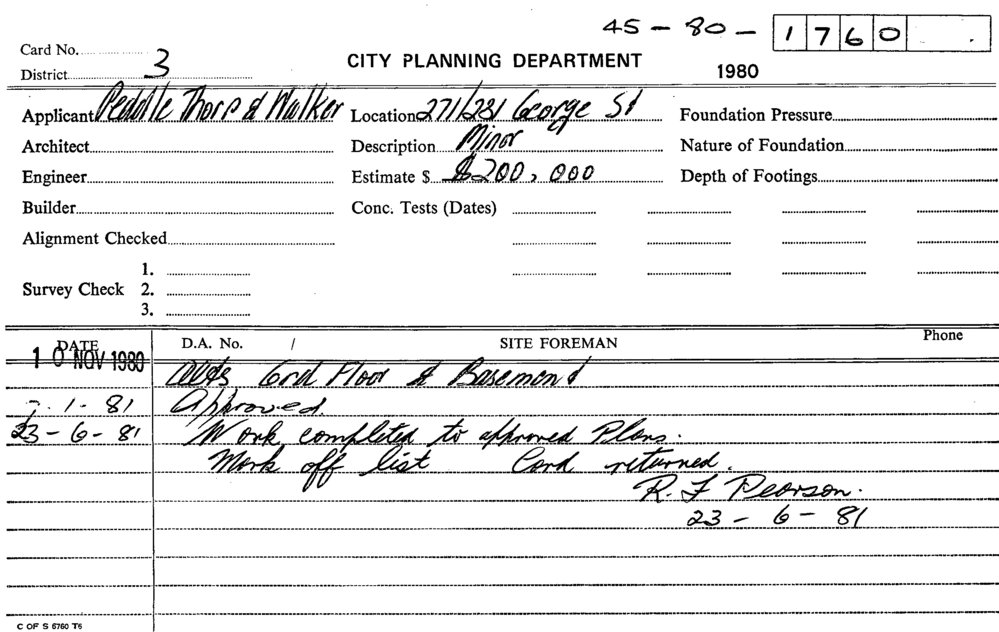 45 - 80 - 1760
Card No.
District 3
CITY PLANNING DEPARTMENT
1980
Applicant Peddle Thorp & Walker Location 271/281 George St Foundation Pressure
Architect Description Minor Nature of Foundation
Engineer Estimate $ $200,000 Depth of Footings
Builder Conc. Tests (Dates)
Alignment Checked
1.
Survey Check 2.
3.
DATE D.A. No. / SITE FOREMAN Phone
10 NOV 1980 Alts Grd Floor & Basement
1 - 81 Approved.
23 - 6 - 81 Work completed to approved Plans.
Mark off list Card returned.
R. F Pearson.
23 - 6 - 81
C OF S 6760 T6